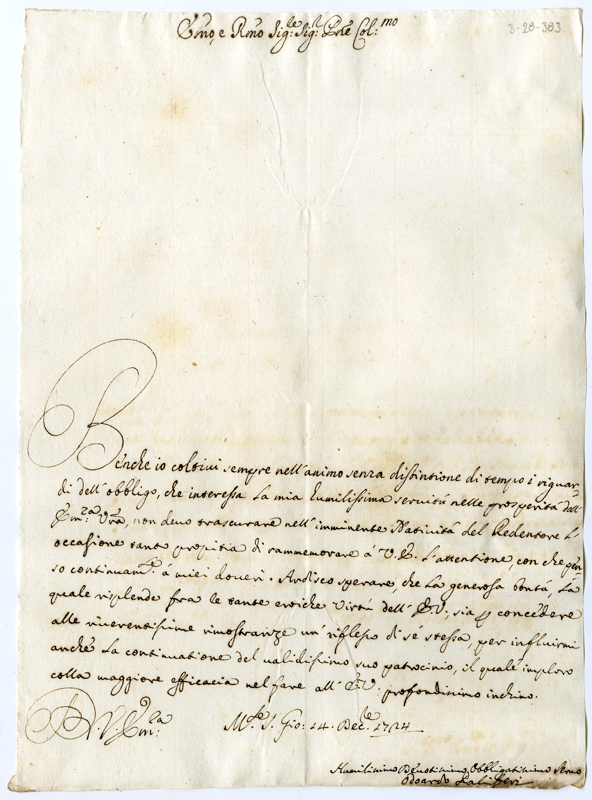 Emo, e Rmo Sig:re Sig:r Pne Col:mo
3-28-383
Benche io coltivi sempre nell'animo senza distintione di tempo i riguar-
di dell'obbligo, che interessa la mia humilissima servitù nelle prosperità dell'
Em:za Vra, non devo trascurare nell'imminente Natività del Redentore l'
occasione tanto propitia di rammemorare à V. E. l'attentione, con che pen-
so continuam:te à miei doveri. Ardisco sperare, che la generosa bontà, la
quale risplende frà le tante eroiche virtù dell'E.V., sia p concedere
alle riverentissime rimostranze un riflesso di se stessa, per influirmi
anche la continuatione del validissimo suo patrocinio, il quale imploro
colla maggiore efficacia nel fare all'E.V. profondissimo inchino.
D V Em:za
S. Gio: 14. Dec:re 1724
Humilissimo Devotissimo Obbligatissimo Servo
Odoardo